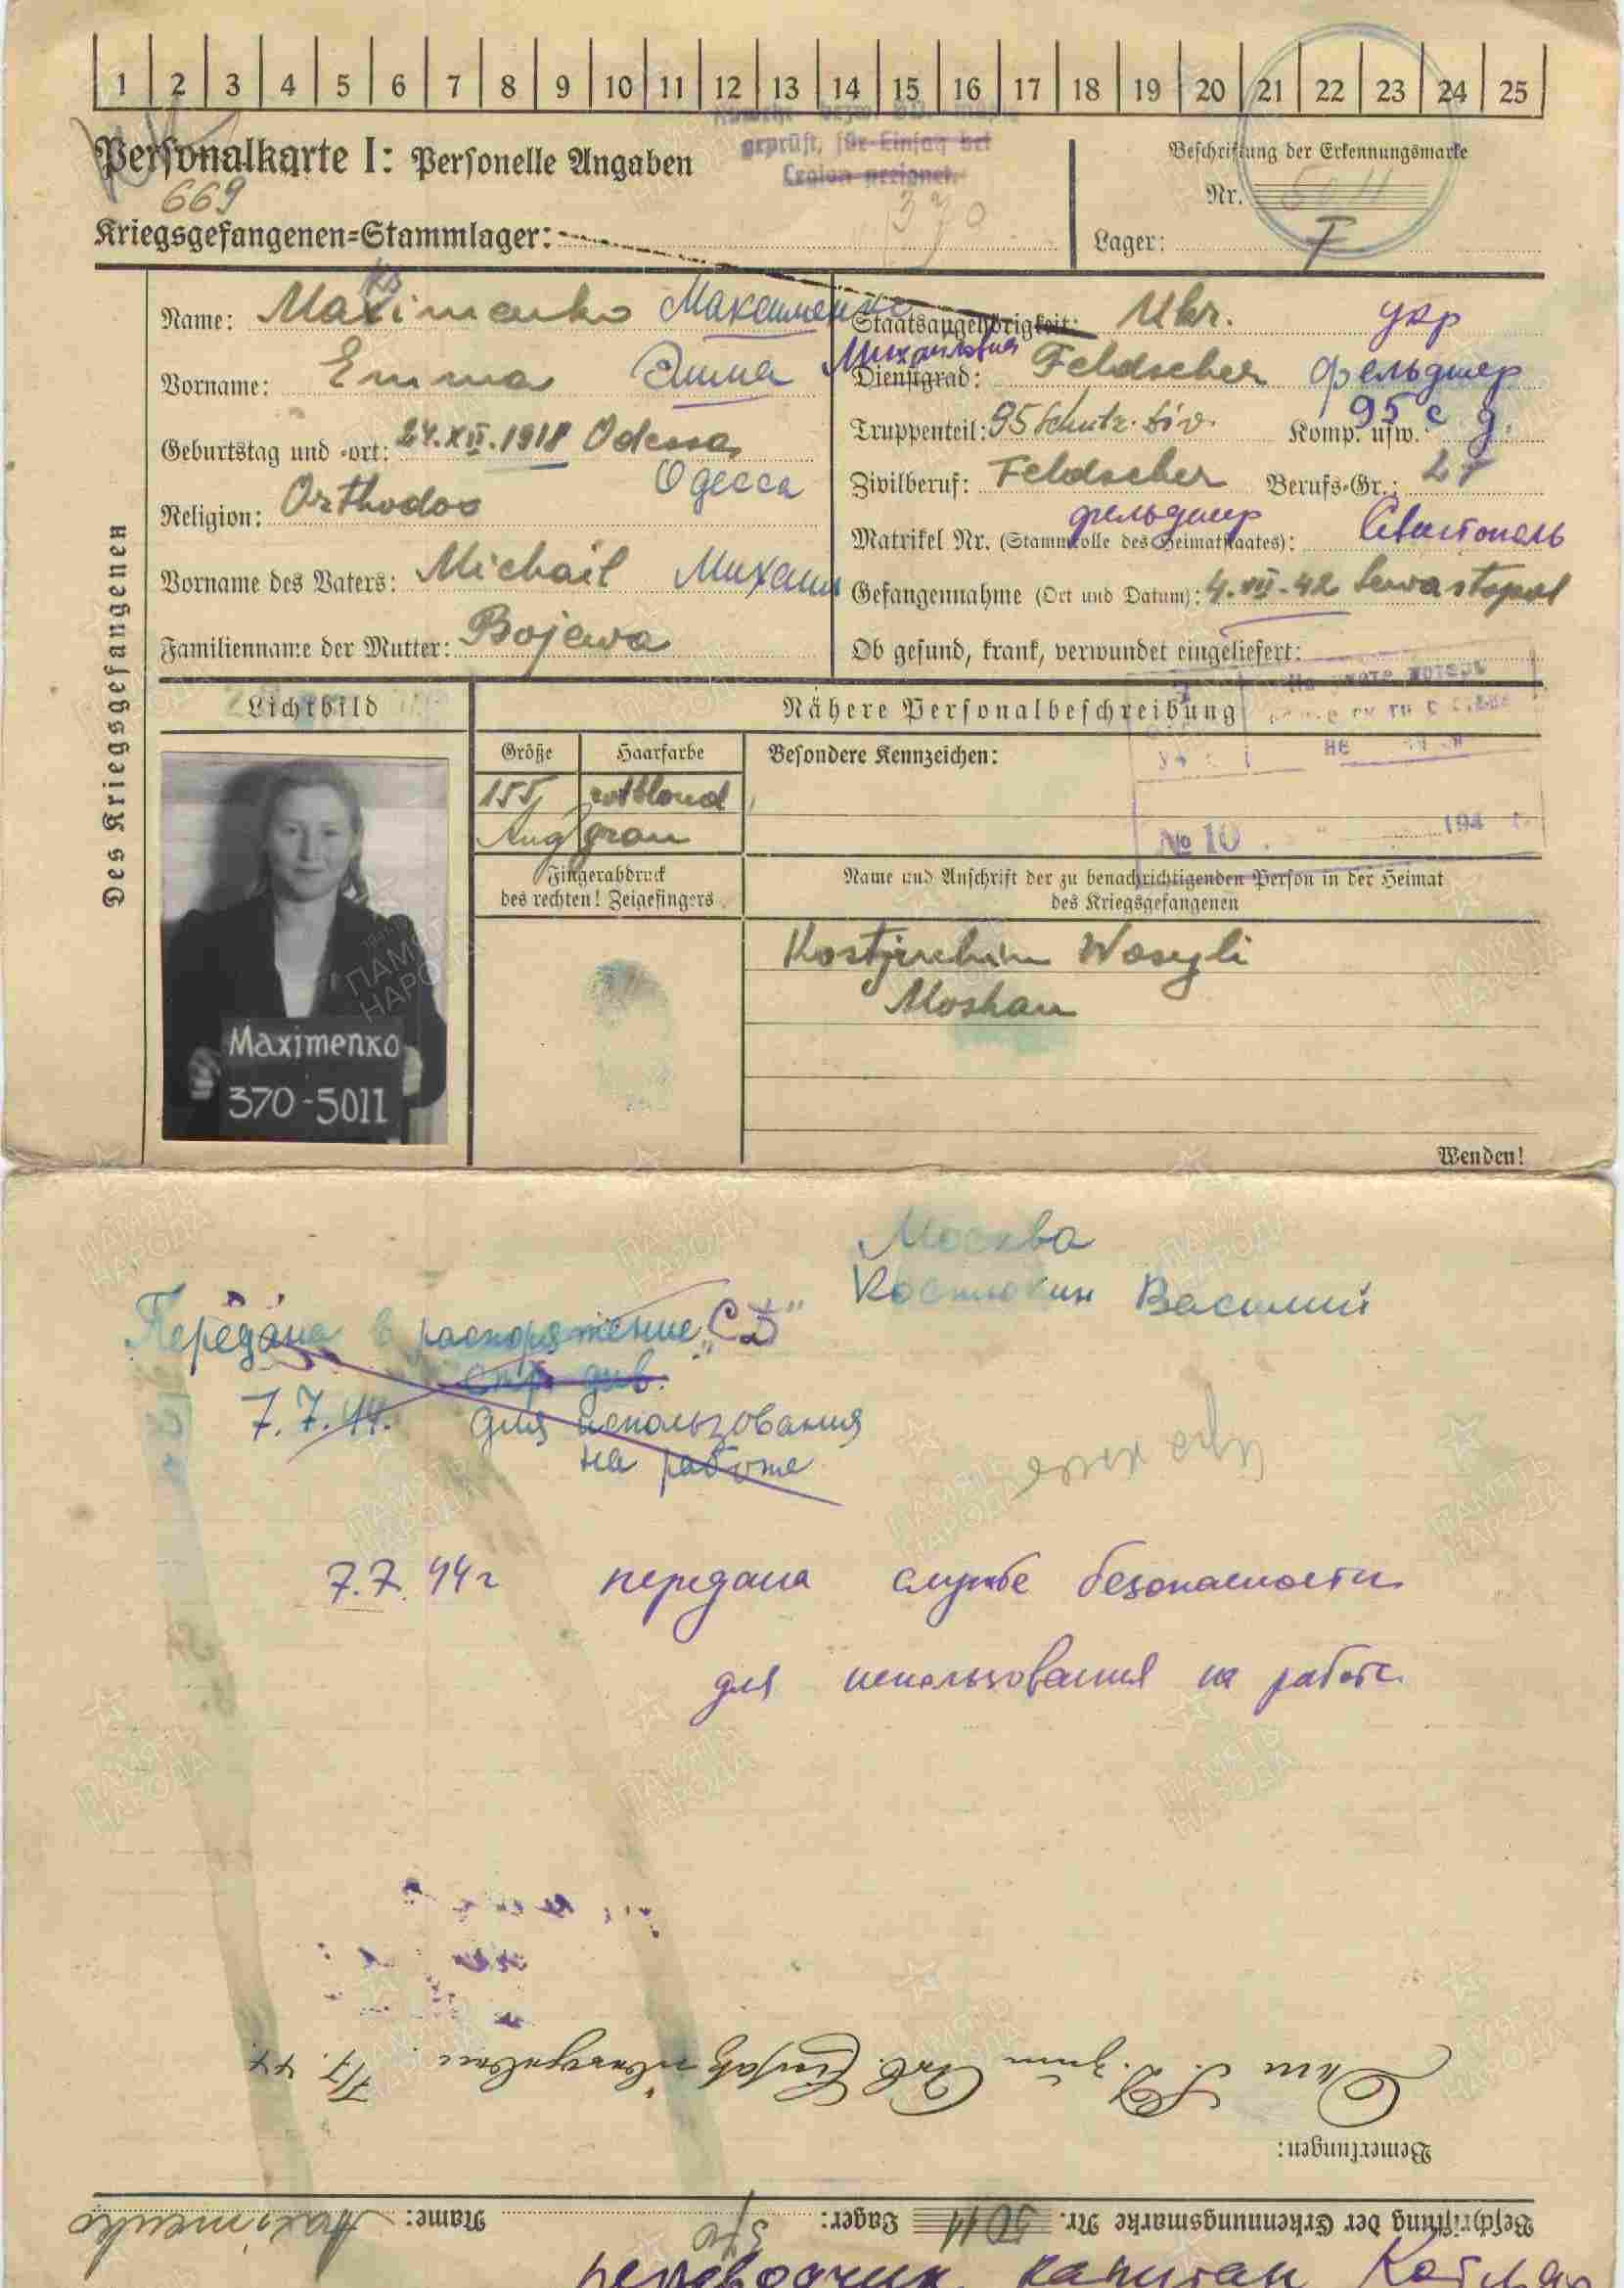 1 2 3 4 5 6 7 8 9 10 11 12 13 14 15 16 17 18 19 20 21 22 23 24 25
geprüft, für Einsatz bei
Legion geeignet.
Personalkarte I: Personelle Angaben
Beschriftung der Erkennungsmarke
Nr. 5011
669
370
Kriegsgefangenen=Stammlager:
Lager: F
Des Kriegsgefangenen
Name: Maximenko Максименко
Vorname: Emma Эмма Михайловна
Geburtstag und -ort: 24.XII.1918 Odessa
Одесса
Religion: Orthodox
Vorname des Vaters: Michail Михаил
Familienname der Mutter: Bojewa
Staatsangehörigkeit: Ukr. укр
Dienstgrad: Feldscher фельдшер
Truppenteil: 95 Schutz. Div. Komp. usw. 95 с д.
Zivilberuf: Feldscher Berufs-Gr.: 27
фельдшер
Matrikel Nr. (Stammrolle des Heimatstaates): Севастополь
Gefangennahme (Ort und Datum): 4.VII.42 Sewastopol
Ob gesund, krank, verwundet eingeliefert:
Lichtbild
Nähere Personalbeschreibung
Größe Haarfarbe Besondere Kennzeichen:
155 rotblond
Aug grau
№ 10
194
Fingerabdruck
des rechten! Zeigefingers
Name und Anschrift der zu benachrichtigenden Person in der Heimat
des Kriegsgefangenen
Kostjuchin Wasyli
Moskau
Maximenko
370-5011
Wenden!
Москва
Костюхин Василий
Передана в распоряжение „СД"
стр. див.
7.7.44. для использования
на работе
7.7.44г передана службе безопасности
для использования на работе.
Dem S.D. zum Arb. Einsatz übergeben. 7/7.44.
Bemerkungen:
Beschriftung der Erkennungsmarke Nr. 5011 Lager: 370 Name: Maximenko
переводчик капитан